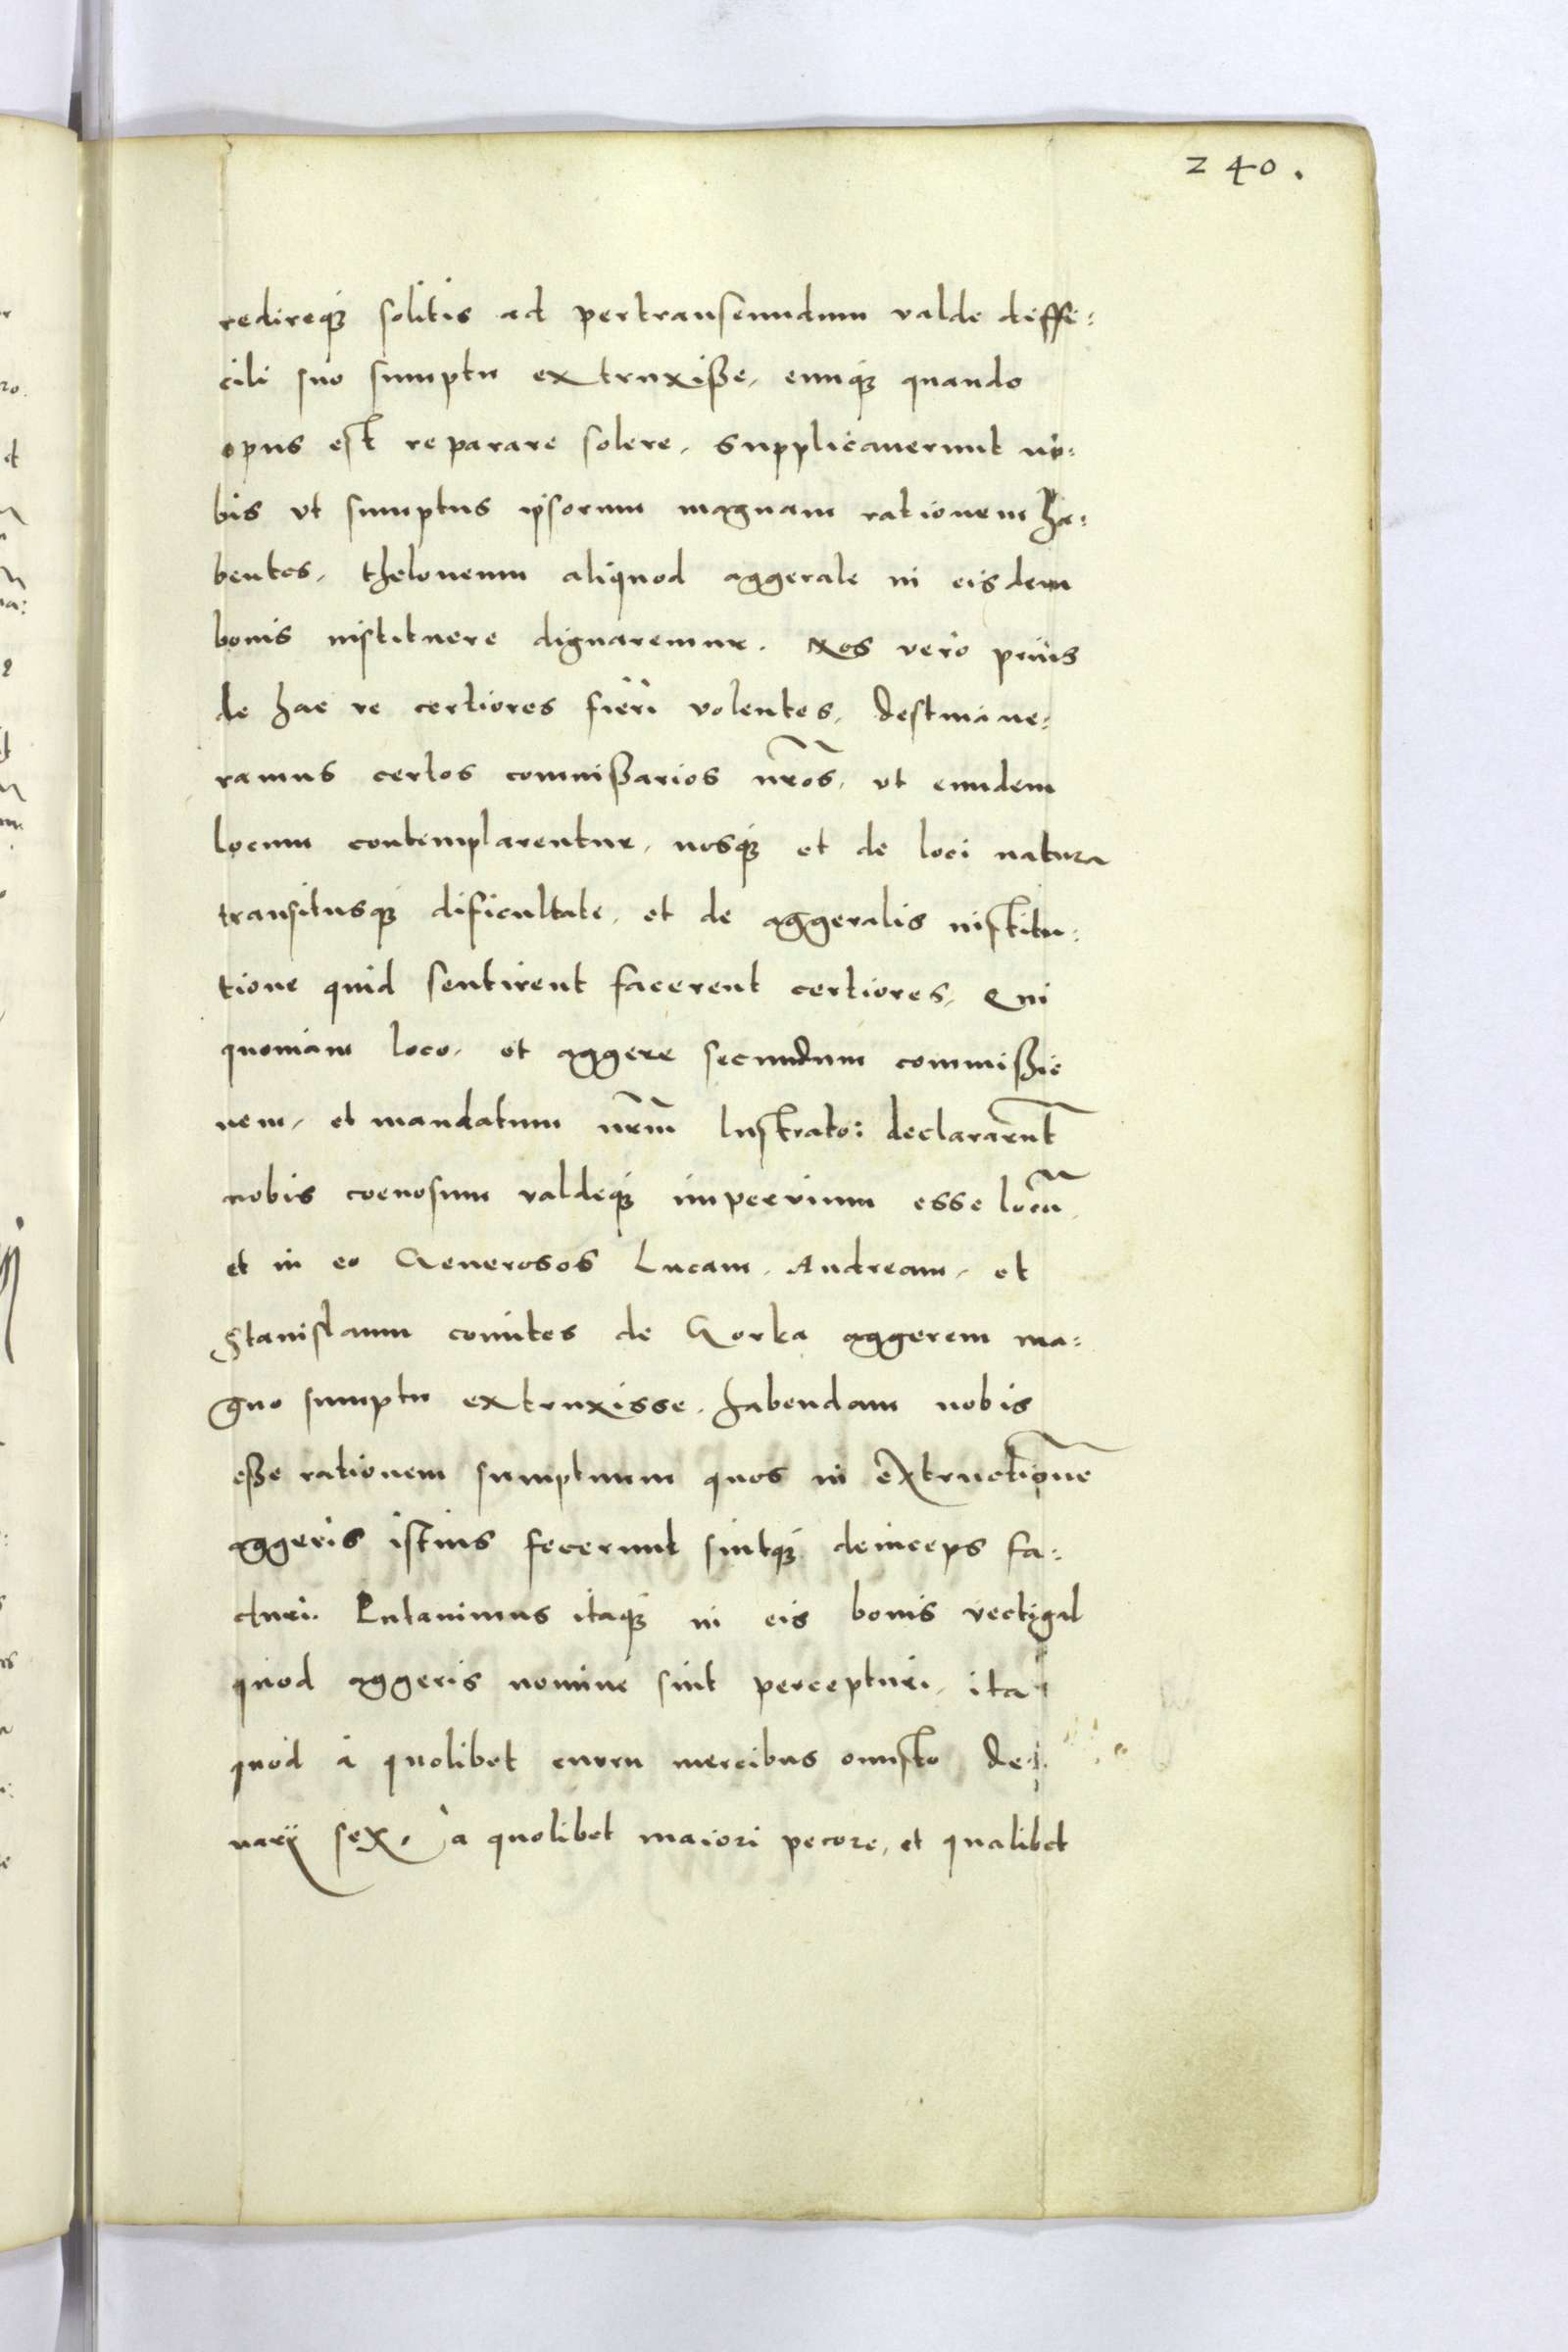 240.
redireq3 solitis ad pertranseundum valde diffi:
cili suo sumptu extruxiße, eumq3 quando
opus est reparare solere, supplicauerunt no:
bis vt sumptus ipsorum magnam rationem ha:
bentes, theloneum aliquod aggerale in eisdem
bonis instituere dignaremur. Nos vero prius
de hac re certiores fieri volentes, destinaue:
ramus certos commißarios nr̃os, vt eundem
locum contemplarentur, nosq3 et de loci natura
transitusq3 dificultate, et de aggeralis institu:
tione quid sentirent facerent certiores, Qui
quoniam loco, et aggere secundum commißio
nem, et mandatum nr̃m lustrato: declararẽnt
nobis coenosum valdeq3 imperuium esse locũ,
et in eo Generosos Lucam, Andream, et
Stanislaum comites de Gorka aggerem ma:
gno sumptu extruxisse, habendam nobis
eße rationem sumptuum quos in extructionẽ
aggeris istius fecerunt sintq3 deinceps fa:
cturi. Putauimus itaq3 in eis bonis vectigal
quod aggeris nomine sint percepturi, ita
quod à quolibet curru mercibus onusto de:
narij sex, à quolibet maiori pecore, et qualibet